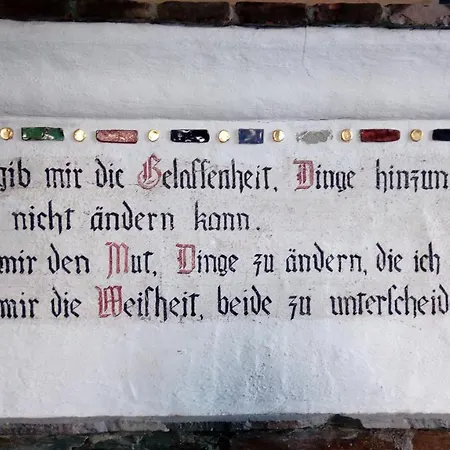 gib mir die Gelassenheit, Dinge hinzun
nicht ändern kann.
mir den Mut, Dinge zu ändern, die ich
mir die Weisheit, beide zu unterscheid